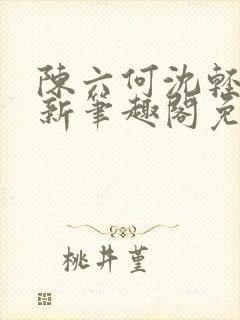 陳六何沈輕
新筆趣閣免
桃井堇